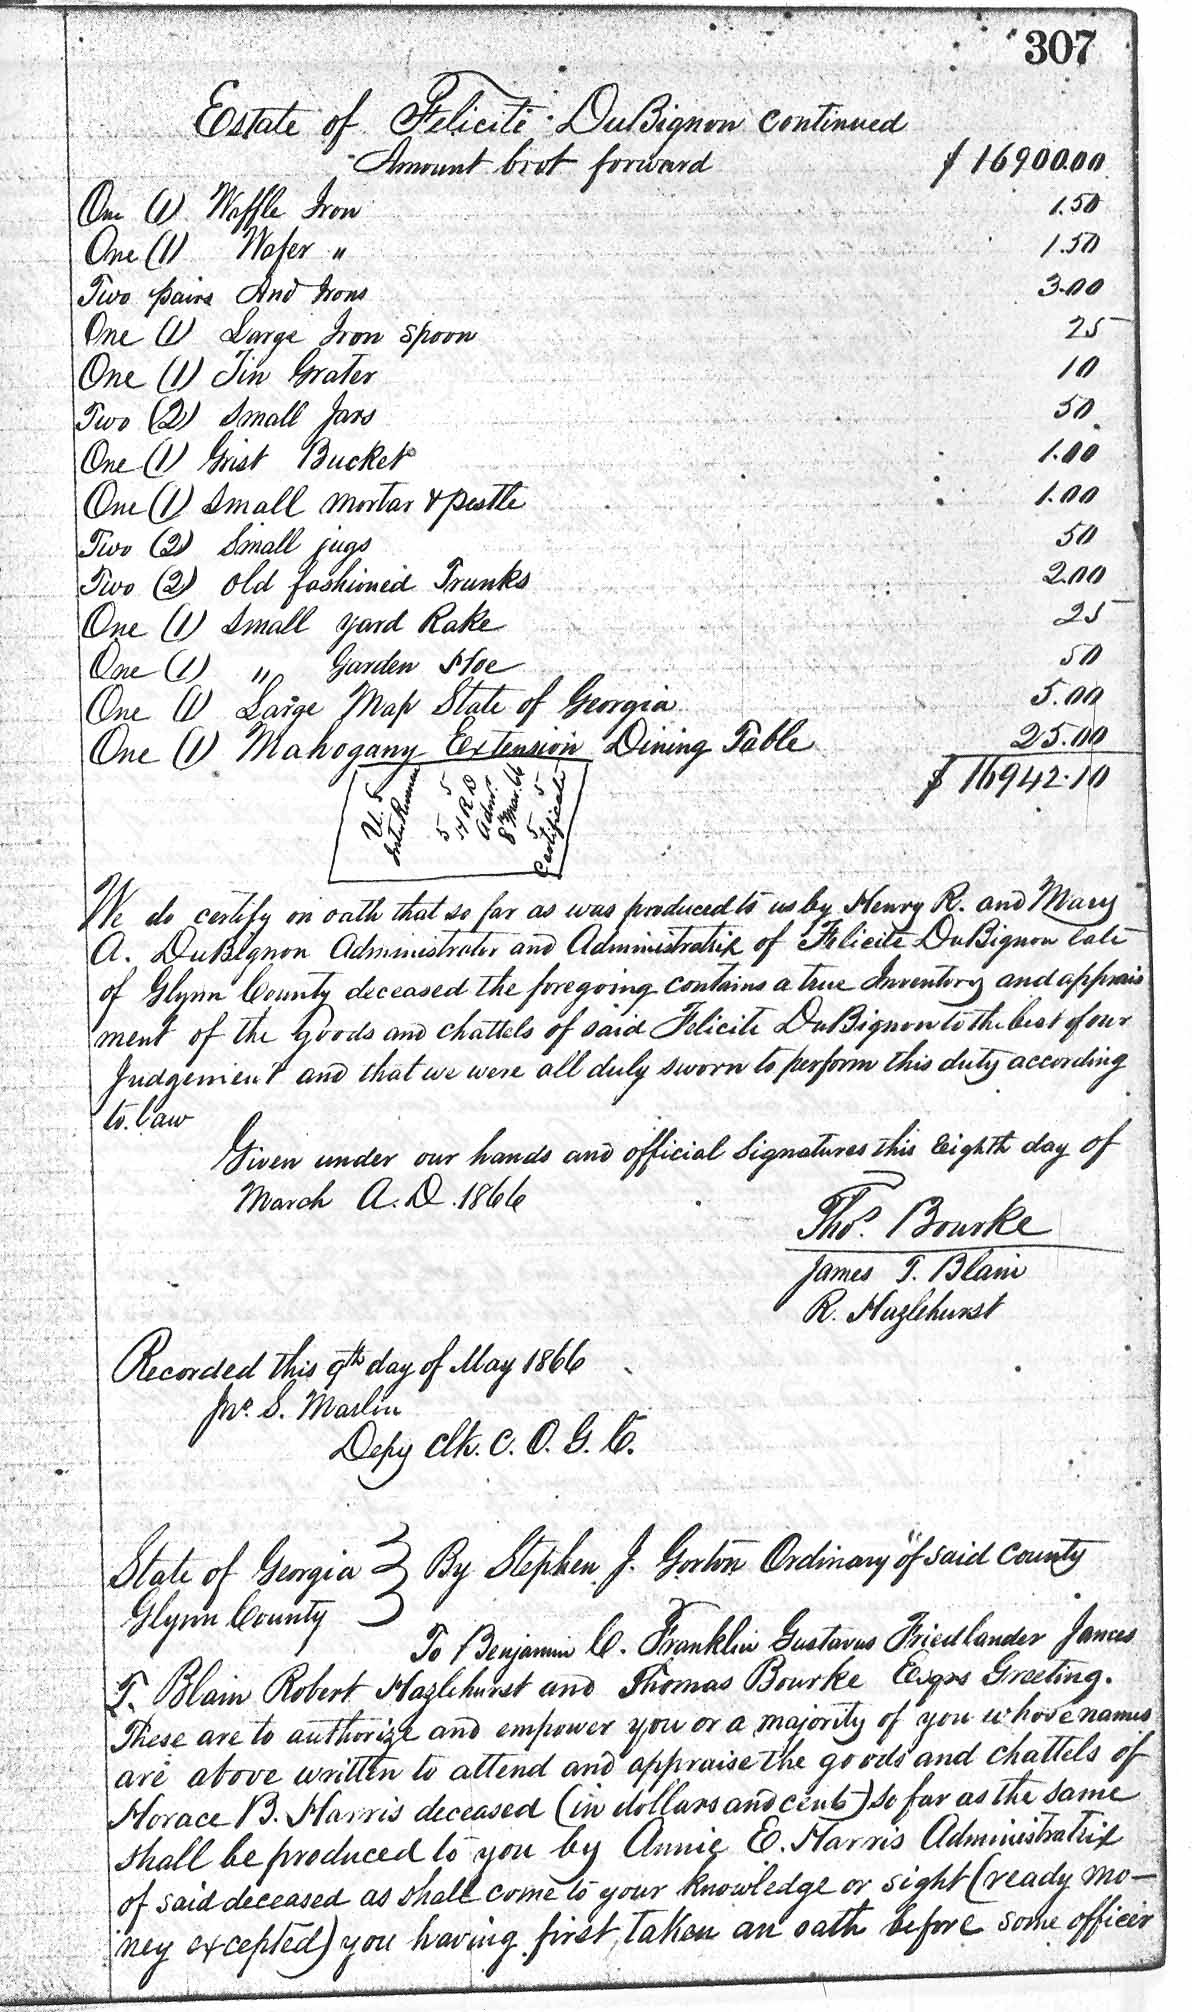 307
Estate of Felicite DuBignon continued
Amount brot forward $ 16900.00
One (1) Waffle Iron 1.50
One (1) Wafer " 1.50
Two pairs And Irons 3.00
One (1) Large Iron spoon 25
One (1) Tin Grater 10
Two (2) Small Jars 50
One (1) Grist Bucket 1.00
One (1) Small mortar & pestle 1.00
Two (2) Small jugs 50
Two (2) old fashioned Trunks 2.00
One (1) Small yard Rake 25
One (1) " Garden Hoe 50
One (1) Large Map State of Georgia 5.00
One (1) Mahogany Extension Dining Table 25.00
$ 16942.10
U. S
Inte Revenue
5 5
H R D
Admr.
8 Mar. 66
5 5
Certificate
We do certify on oath that so far as was produced to us by Henry R. and Mary
A. DuBignon Administrator and Administratrix of Felicite DuBignon late
of Glynn County deceased the foregoing contains a true Inventory and apprais
ment of the goods and chattels of said Felicite DuBignon to the best of our
Judgement and that we were all duly sworn to perform this duty according
to law
Given under our hands and official Signatures this Eighth day of
March A. D. 1866
Thos. Bourke
James T. Blain
R. Hazlehurst
Recorded this 9th day of May 1866
Jno. S. Maslin
Depy Clk. C. O. G. C.
State of Georgia } By Stephen J. Gorton Ordinary of said county
Glynn County
To Benjamin C. Franklin Gustavus Friedlander James
T. Blain Robert Hazlehurst and Thomas Bourke Esqrs Greeting.
These are to authorize and empower you or a majority of you whose names
are above written to attend and appraise the goods and chattels of
Horace B. Harris deceased (in dollars and cents) so far as the same
shall be produced to you by Annie E. Harris Administratrix
of said deceased as shall come to your knowledge or sight (ready mo-
ney excepted) you having first taken an oath before some officer